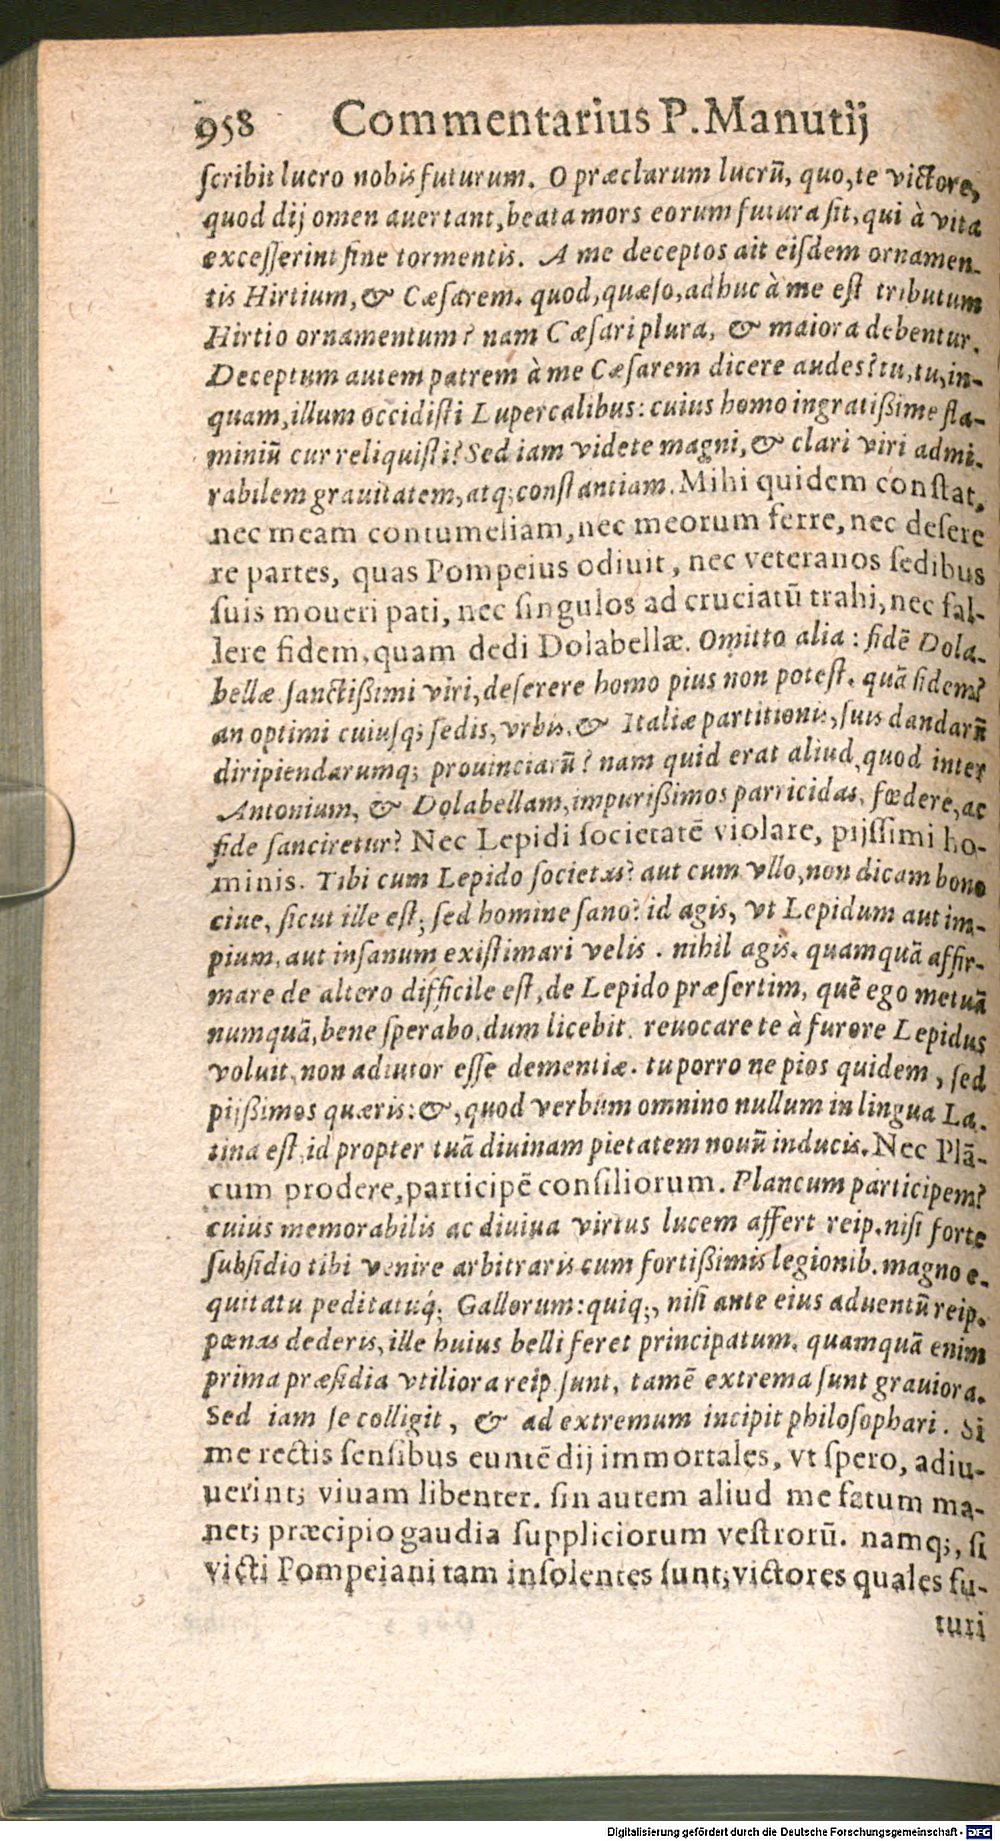 958 Commentarius P. Manutij
ſcribit lucro nobis futurum. O præclarum lucrũ, quo, te victore,
quod dij omen auertant, beata mors eorum futura ſit, qui à vita
exceſſerint ſine tormentis. A me deceptos ait eiſdem ornamen-
tis Hirtium, & Cæſarem. quod, quæſo, adhuc à me eſt tributum
Hirtio ornamentum? nam Cæſari plura, & maiora debentur.
Deceptum autem patrem à me Cæſarem dicere audes? tu, tu, in-
quam, illum occidiſti Lupercalibus: cuius homo ingratißime fla-
miniũ cur reliquiſti? Sed iam videte magni, & clari viri admi-
rabilem grauitatem, atq; conſtantiam. Mihi quidem conſtat,
nec meam contumeliam, nec meorum ferre, nec deſere
re partes, quas Pompeius odiuit, nec veteranos ſedibus
ſuis moueri pati, nec ſingulos ad cruciatũ trahi, nec fal-
lere fidem, quam dedi Dolabellæ. Omitto alia: fidẽ Dola-
bellæ ſanctißimi viri, deſerere homo pius non poteſt. quã fidem?
an optimi cuiuſq; ſedis, vrbis, & Italiæ partitionis, ſuis dandarũ
diripiendarumq; prouinciarũ? nam quid erat aliud, quod inter
Antonium, & Dolabellam, impurißimos parricidas, fœdere, ac
fide ſanciretur? Nec Lepidi ſocietatẽ violare, pijſſimi ho-
minis. Tibi cum Lepido ſocietas? aut cum vllo, non dicam bono
ciue, ſicut ille eſt; ſed homine ſano? id agis, vt Lepidum aut im-
pium, aut inſanum exiſtimari velis. nihil agis. quamquã affir-
mare de altero difficile eſt, de Lepido præſertim, quẽ ego metuã
numquã, bene ſperabo, dum licebit. reuocare te à furore Lepidus
voluit, non adiutor eſſe dementiæ. tu porro ne pios quidem, ſed
pijßimos quæris: &, quod verbum omnino nullum in lingua La-
tina eſt, id propter tuã diuinam pietatem nouũ inducis. Nec Plã-
cum prodere, participẽ conſiliorum. Plancum participem?
cuius memorabilis ac diuiua virtus lucem affert reip. niſi forte
ſubſidio tibi venire arbitraris cum fortißimis legionib. magno e-
quitatu peditatuq́; Gallorum: quiq;, niſi ante eius aduentũ reip.
pœnas dederis, ille huius belli feret principatum. quamquã enim
prima præſidia vtiliora reip ſunt, tamẽ extrema ſunt grauiora.
Sed iam ſe colligit, & ad extremum incipit philoſophari. Si
me rectis ſenſibus euntẽ dij immortales, vt ſpero, adiu-
uerint; viuam libenter. ſin autem aliud me fatum ma-
net; præcipio gaudia ſuppliciorum veſtrorũ. namq;, ſi
victi Pompeiani tam inſolentes ſunt; victores quales fu-
turi
Digitalisierung gefördert durch die Deutsche Forschungsgemeinschaft - DFG